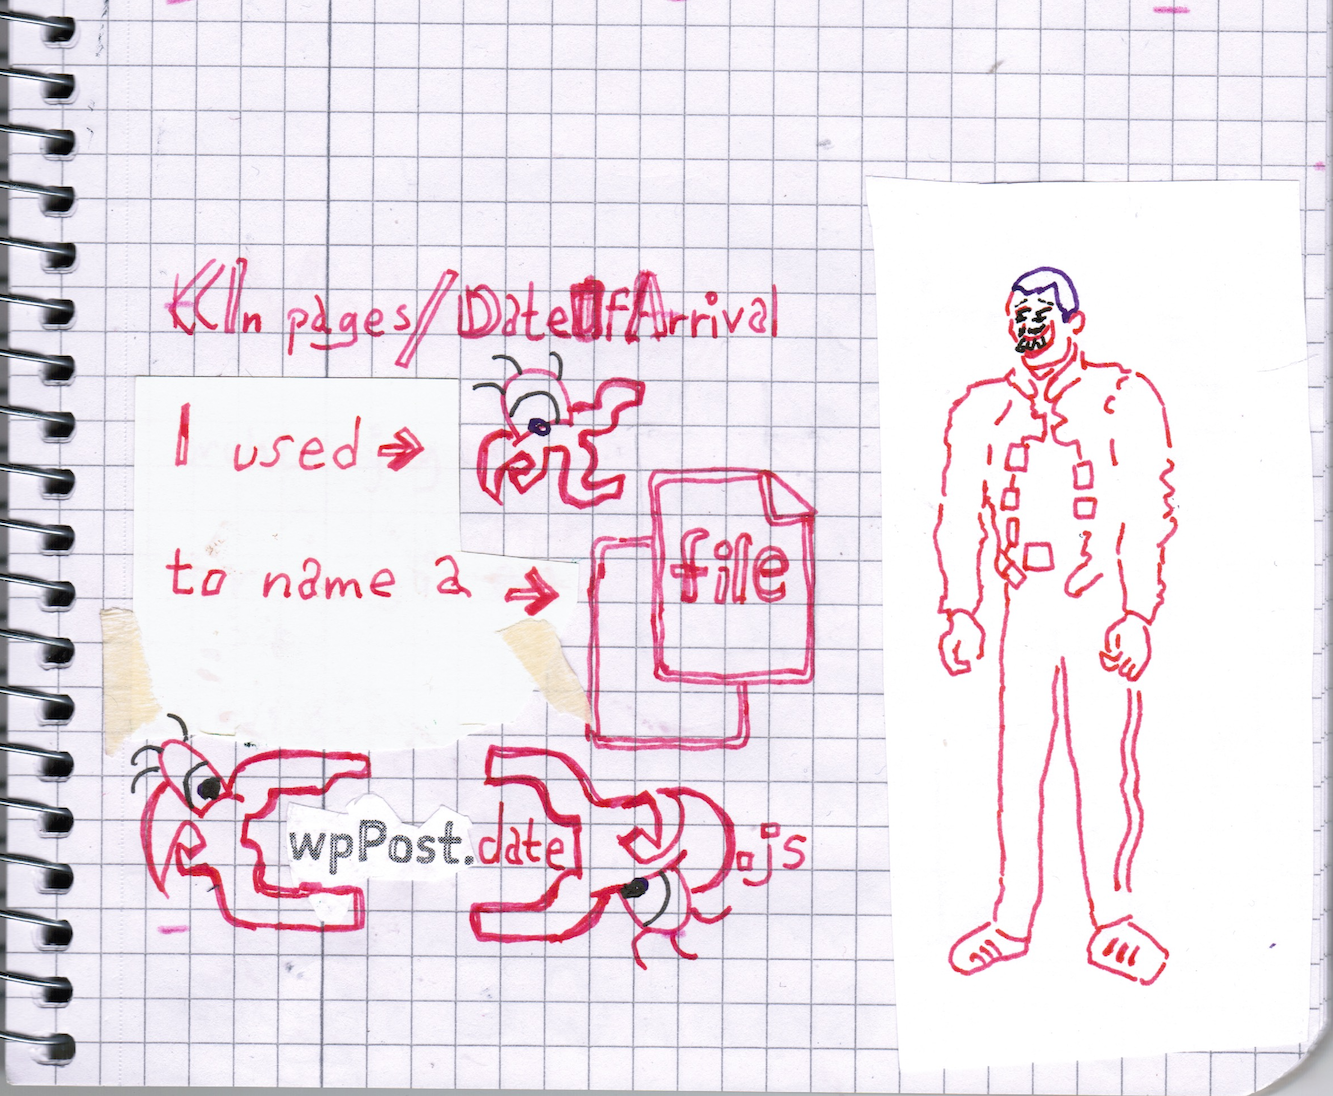 In pages/DateOfArrival
I used →
to name a →
file
{wpPost.date}.js